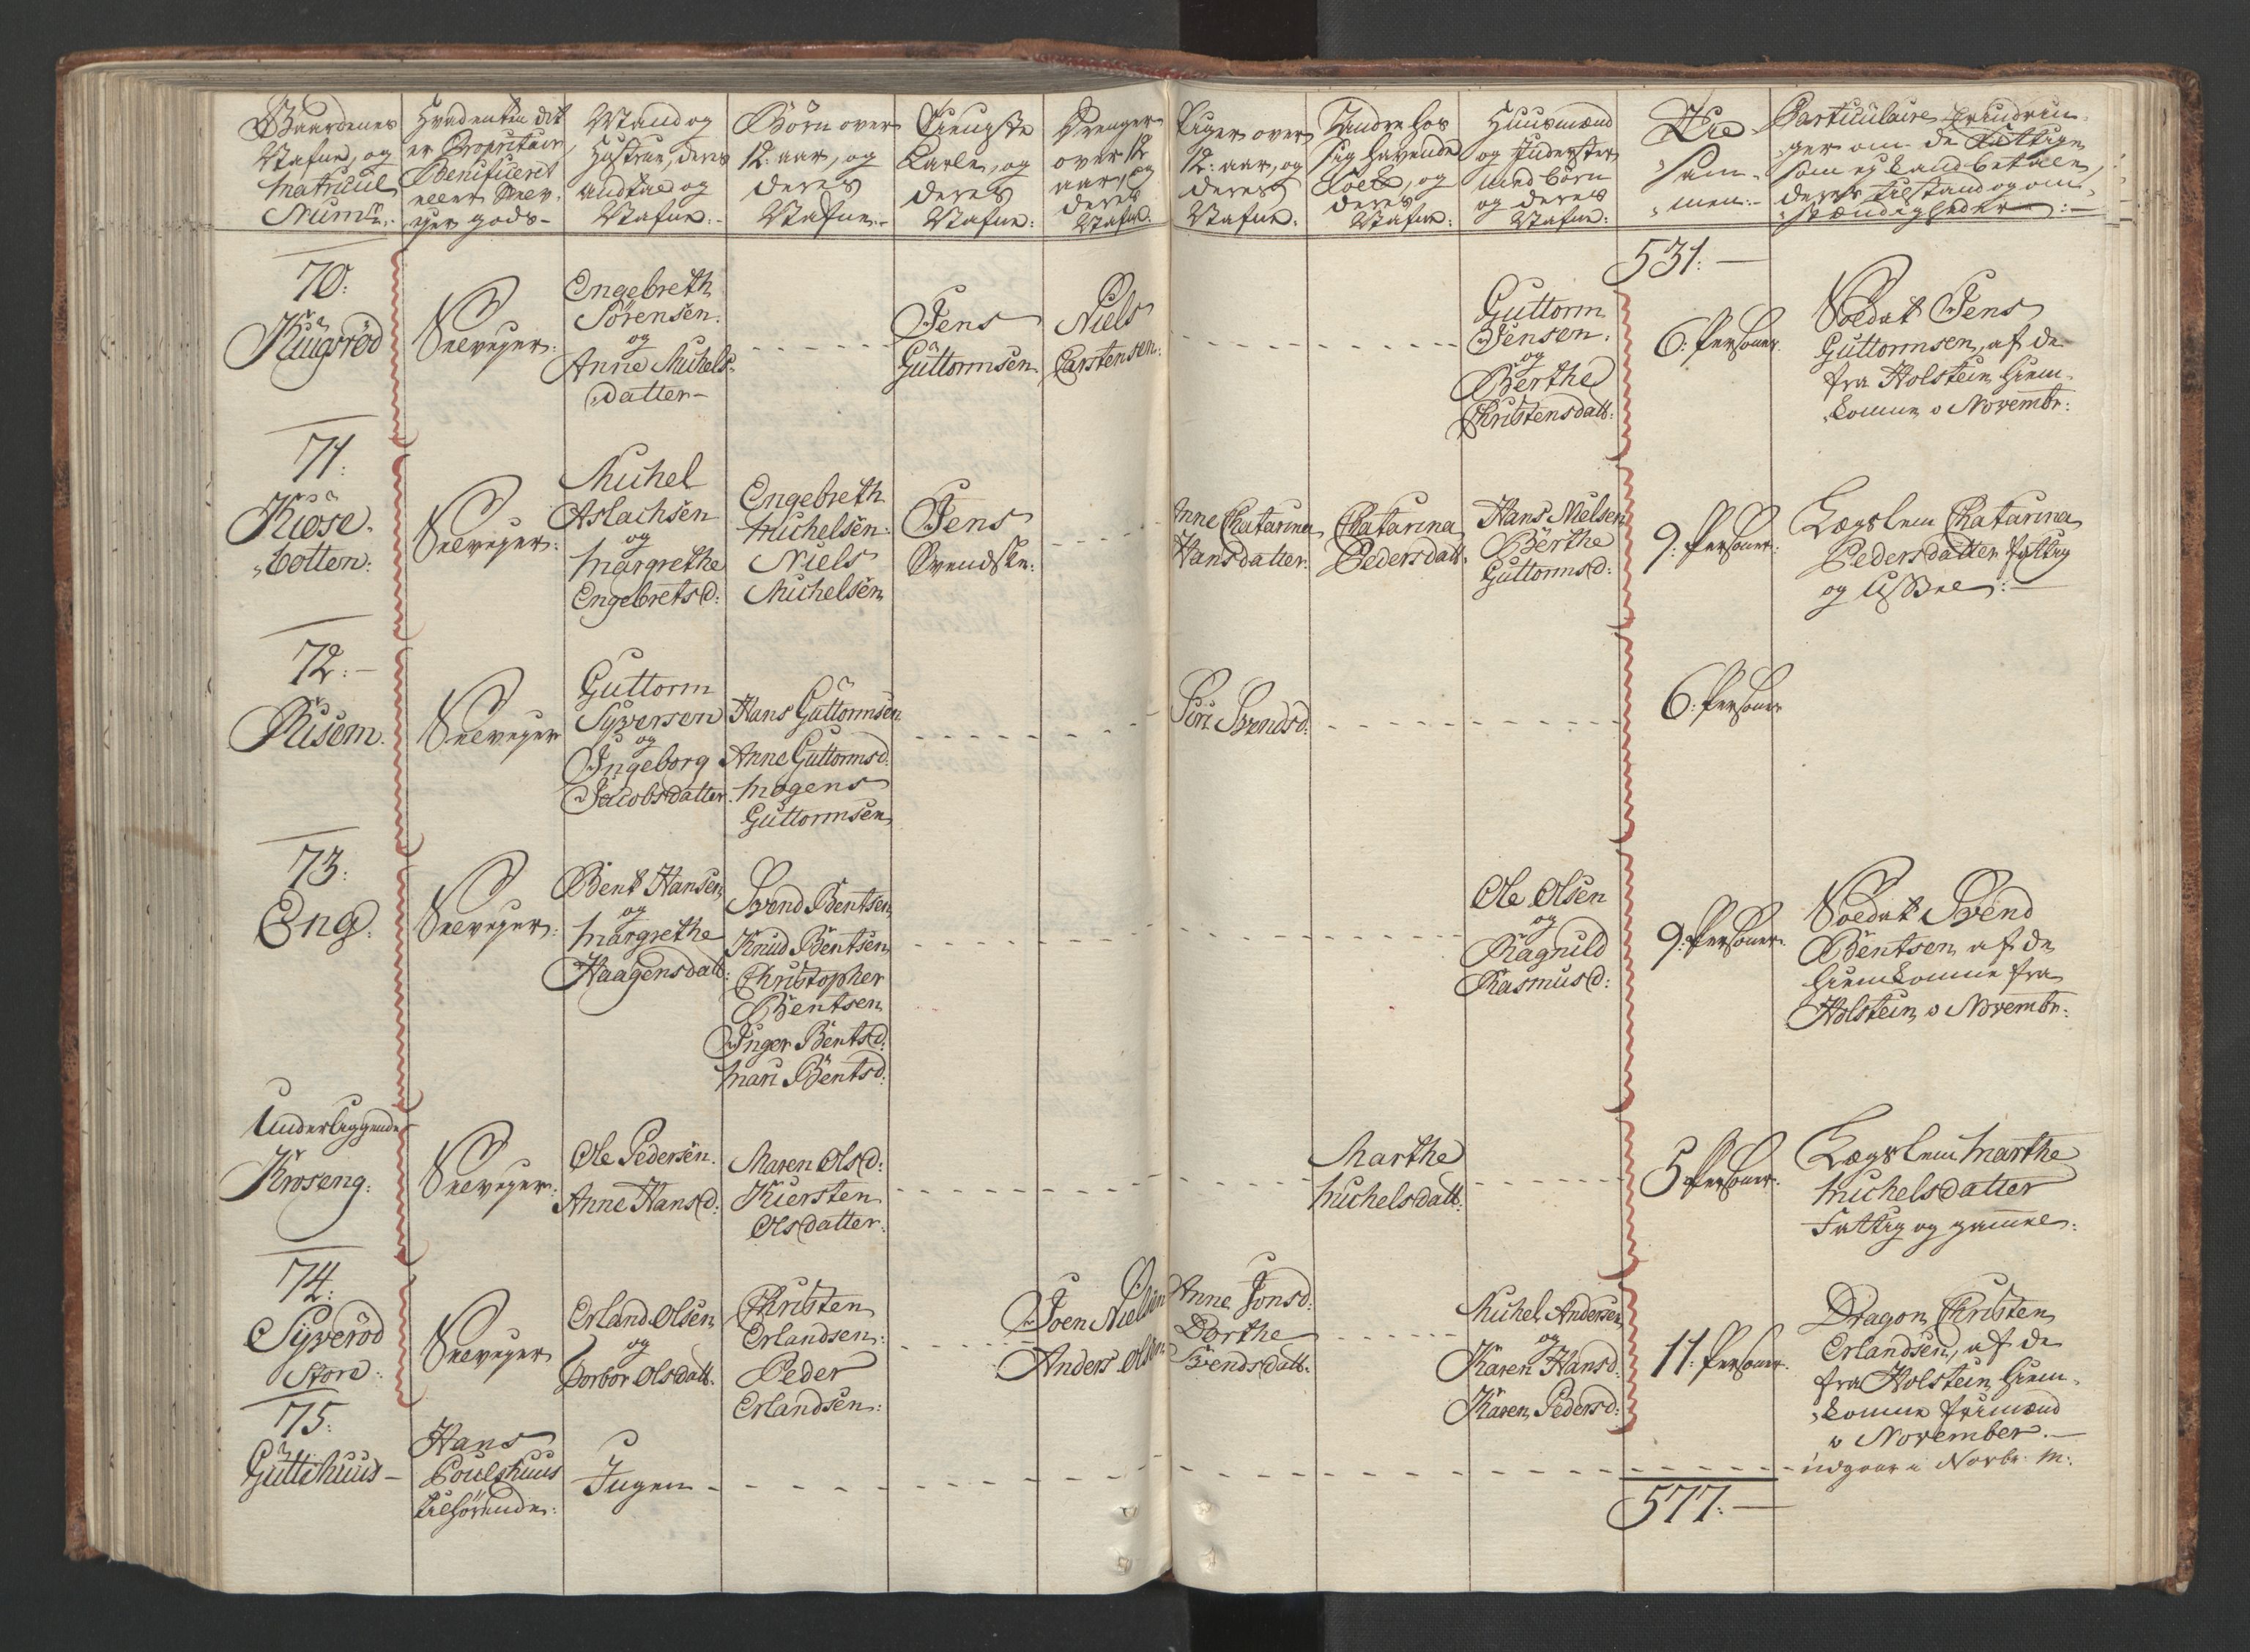 Gaardenes
Nafne, og
Matricul
Numr:
Hvad enten dit
er Propritair,
Benificeret
eller Selv-
ejer gods-
Mand og
Hustrue, deres
andtal og
Nafne:-
Børn over
12: aar, og
deres
Nafne:-
Tieniste
Karle, og
deres
Nafne:
Drenger
over 12
aar, og
deres
Nafne:
Piger over
12: aar, og
deres
Nafne:
Andre hos
sig havende
Folk, og
deres
Nafne:
Huusmænd
og Inderster
med børn
og deres
Nafne:
Til-
sam-
men:-
Particulaire Erindrin-
ger om de Fattige
som ej kand betale,
deres tilstand og om-
stændigheder:-
531:-
70:
Kiugsrød
Selvejer:
Engebreth
Sörensen.
og
Anne Michels-
datter-
Jens
Guttormsen
Niels
Carstensen:
Guttorm
Jensen.
og
Berthe
Christensdatt:
6: Personer
Soldat Jens
Guttormsen, af de
fra Holstein hiem-
komne 9 Novembr:
71:
Kiøse-
botten:
Selvejer:
Michel
Aslachsen
og
Margrethe
Engebretsd:
Engebreth
Michelsen:
Niels
Michelsen
Jens
Svendske:
Anne Chatarina
Hansdatter:
Chatarina
Pedersdatt:
Hans Nielsen
Berthe
Guttormsd:
9: Personer:
Lægslem Chatarina
Pedersdatter fattig
og
72:-
Risem.
Selvejer
Guttorm
Syversen
og
Ingeborg
Jacobsdatter.
Hans Guttormsen
Anne Guttormsd:
Mogens
Guttormsen
Siri Svendsd:
6: Personer
73:
Eng.
Selvejer:
Bent Hansen
og
Margrethe
Haagensdatt:
Svend Bentsen
Knud Bentsen
Christopher
Bentsen
Inger Bentsd:
Mari Bentsd:
Ole Olsen
og
Ragnild
Rasmusd:
9: Personer.
Soldat Svend
Bentsen af de
hiemkomne fra
Holstein 9 Novembr:
Underliggende
Kroseng:
Selvejer:
Ole Pedersen.
Anne Hansd:
Maren Olsd:
Kiersten
Olsdatter:
Marthe
Michelsdatt:
5 Personer.
Lægslem Marthe
Michelsdatter
Fattig og gammel:
74:
Syverød
Store:
Selvejer
Erland Olsen
og
Dorbor Olsdatt:
Christen
Erlandsen:
Peder
Erlandsen:
Joen Nielsen
Anders Olsen
Anne Jonsd:
Dorthe
Svendsdatt:
Michel Andersen
og
Karen Hansd:
Karen Pedersd:
11: Personer.
Dragon Christen
Erlandsen, af de
fra Holstein hiem-
komne
9 November.-
75:
Guttihuus-
Hans
Poulshuus
tilhørende:
Ingen-
udgaar i Novbr: M:
577:-